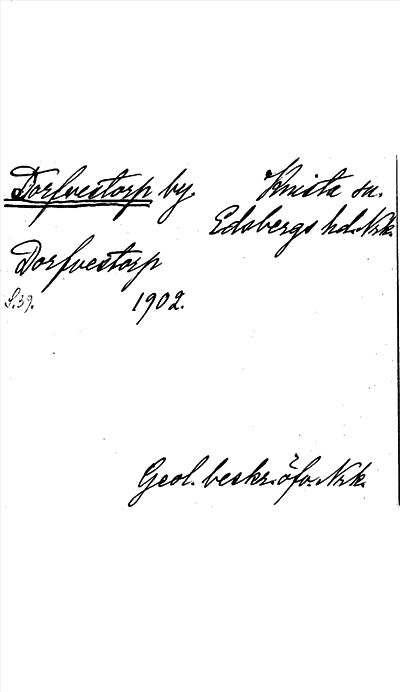 Dorfvestorp by. Knista sn.
Edsbergs hd. Nrk.
Dorfvestorp
S.39. 1902.
Geol. beskr. öfv. Nrk.